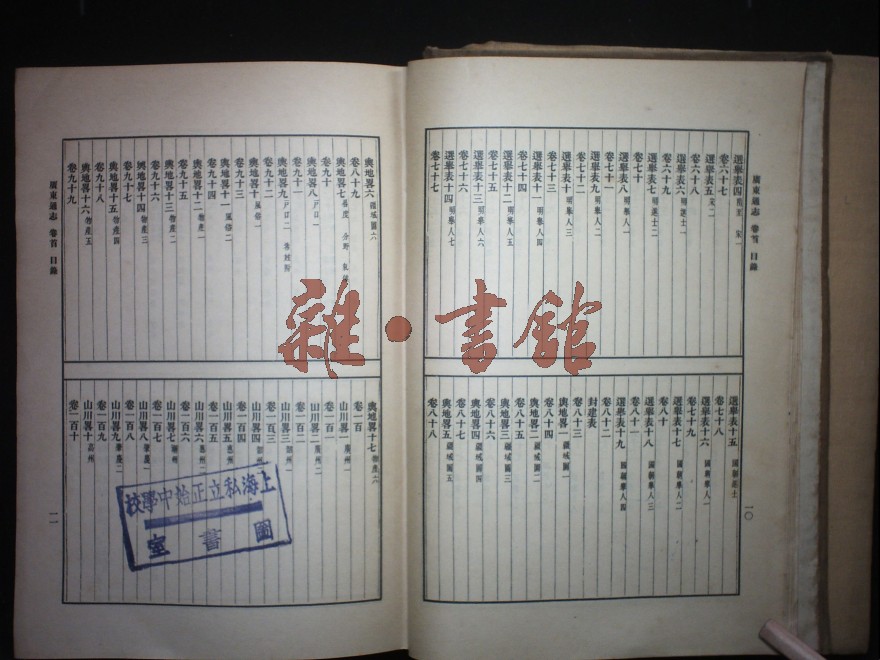 廣東通志 卷首 目錄
一〇
選舉表四
卷六十七
選舉表五 宋二
卷六十八
選舉表六 明進士一
卷六十九
選舉表七 明進士二
卷七十
選舉表八 明舉人一
卷七十一
選舉表九 明舉人二
卷七十二
選舉表十 明舉人三
卷七十三
選舉表十一 明舉人四
卷七十四
選舉表十二 明舉人五
卷七十五
選舉表十三 明舉人六
卷七十六
選舉表十四 明舉人七
卷七十七
選舉表十五 國朝進士
卷七十八
選舉表十六 國朝舉人一
卷七十九
選舉表十七 國朝舉人二
卷八十
選舉表十八 國朝舉人三
卷八十一
選舉表十九 國朝舉人四
卷八十二
封建表
卷八十三
輿地畧一 疆域圖一
卷八十四
輿地畧二 疆域圖二
卷八十五
輿地畧三 疆域圖三
卷八十六
輿地畧四 疆域圖四
卷八十七
輿地畧五 疆域圖五
卷八十八
輿地畧六 疆域圖六
卷八十九
輿地畧七 晷度 分野 氣候
卷九十
輿地畧八 戶口一
卷九十一
輿地畧九 戶口二
卷九十二
輿地畧十 風俗一
卷九十三
輿地畧十一 風俗二
卷九十四
輿地畧十二 物產一
卷九十五
輿地畧十三 物產二
卷九十六
輿地畧十四 物產三
卷九十七
輿地畧十五 物產四
卷九十八
輿地畧十六 物產五
卷九十九
輿地畧十七 物產六
卷一百
山川畧一 廣州一
卷一百一
山川畧二 廣州二
卷一百二
山川畧三 韶州一
卷一百三
山川畧四
卷一百四
山川畧五 惠州一
卷一百五
山川畧六 惠州二
卷一百六
山川畧七 潮州
卷一百七
山川畧八 肇慶一
卷一百八
山川畧九 肇慶二
卷一百九
山川畧十 高州
卷一百十
廣東通志 卷首 目錄
一一
雜·書館
上海私立正始中學校
圖書室